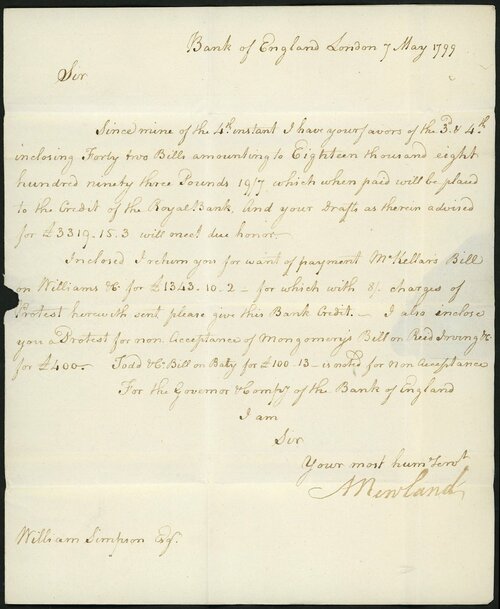 Bank of England London 7 May 1799
Sir
Since mine of the 4th instant I have your favors of the 3d & 4th
inclosing Forty two Bills amounting to Eighteen thousand eight
hundred ninety three Pounds 19/7 which when paid will be placed
to the Credit of the Royal Bank, And your Drafts as therein advised
for £3319.15.3 will meet due honor.—
Inclosed I return you for want of payment McKellar's Bill
on Williams &c for £1343.10.2 — for which with 8/- charges of
Protest herewith sent please give this Bank Credit. — I also enclose
you a Protest for non Acceptance of Montgomery's Bill on Reed Irving &c
for £400 — Todd & Co Bill on Baby for £100-13 — is noted for Non Acceptance
For the Governor & Compy of the Bank of England
I am
Sir
Your most humb Servt
A Newland
William Simpson Esqr.